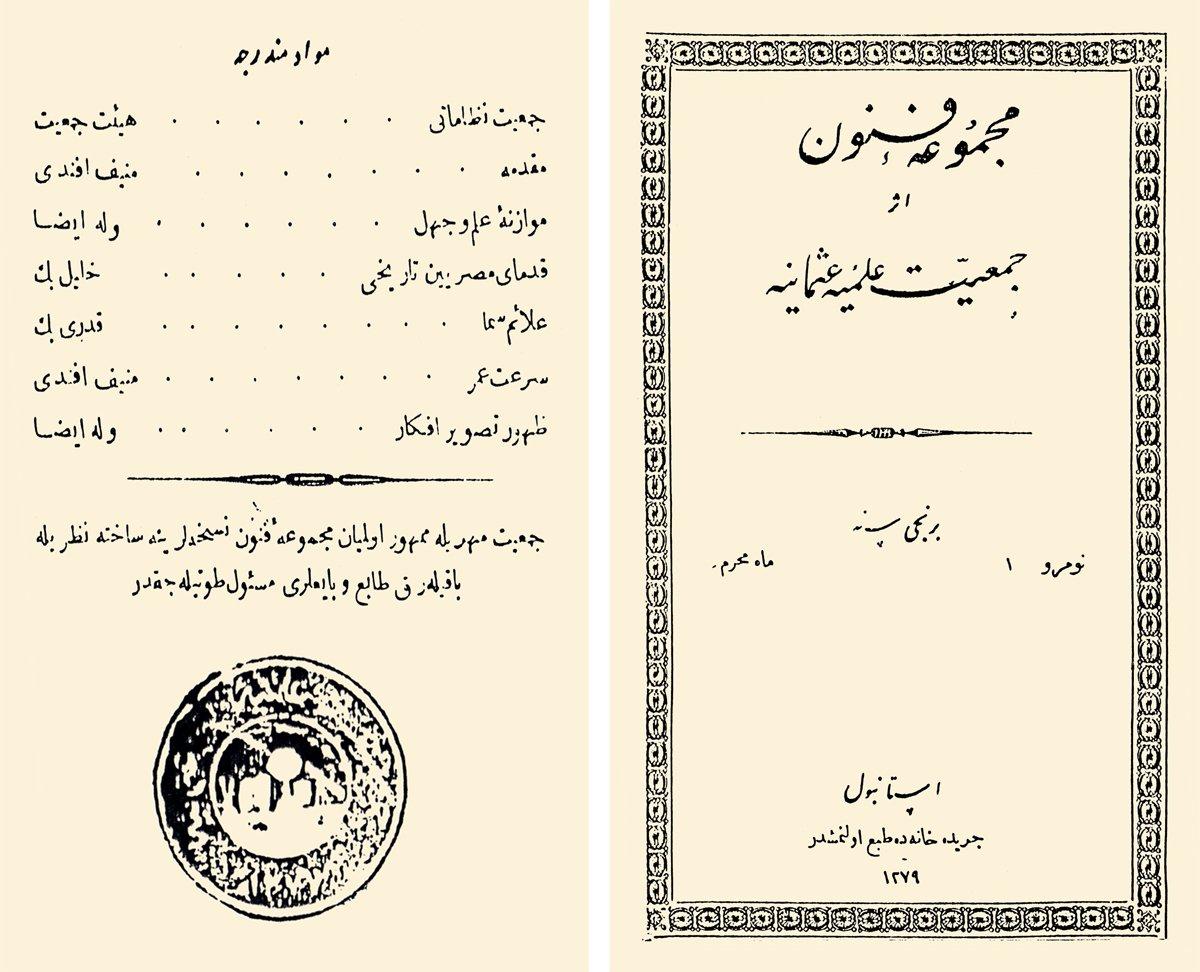 مجموعهٔ فنون
اثر
جمعیّت علمیهٔ عثمانیه
برنجی سنه
نومرو ۱ ماه محرم
استانبول
جریده خانه ده طبع اولنمشدر
۱۲۷۹
مواد مندرجه
جمعیت نظاماتی . . . . . . هیئت جمعیت
مقدمه . . . . . . . منیف افندی
موازنهٔ علم و جهل . . . . . . وله ایضا
قدمای مصریین تاریخی . . . . . خلیل بك
علائم سما . . . . . . . . قدری بك
سرعت عمر . . . . . . . منیف افندی
ظهور تصویر افکار . . . . . . وله ایضا
جمعیت مهریله ممهور اولمیان مجموعهٔ فنون نسخه‌لرینه ساخته نظریله
باقیله‌رق طابع و بایعلری مسئول طوتیله جقدر